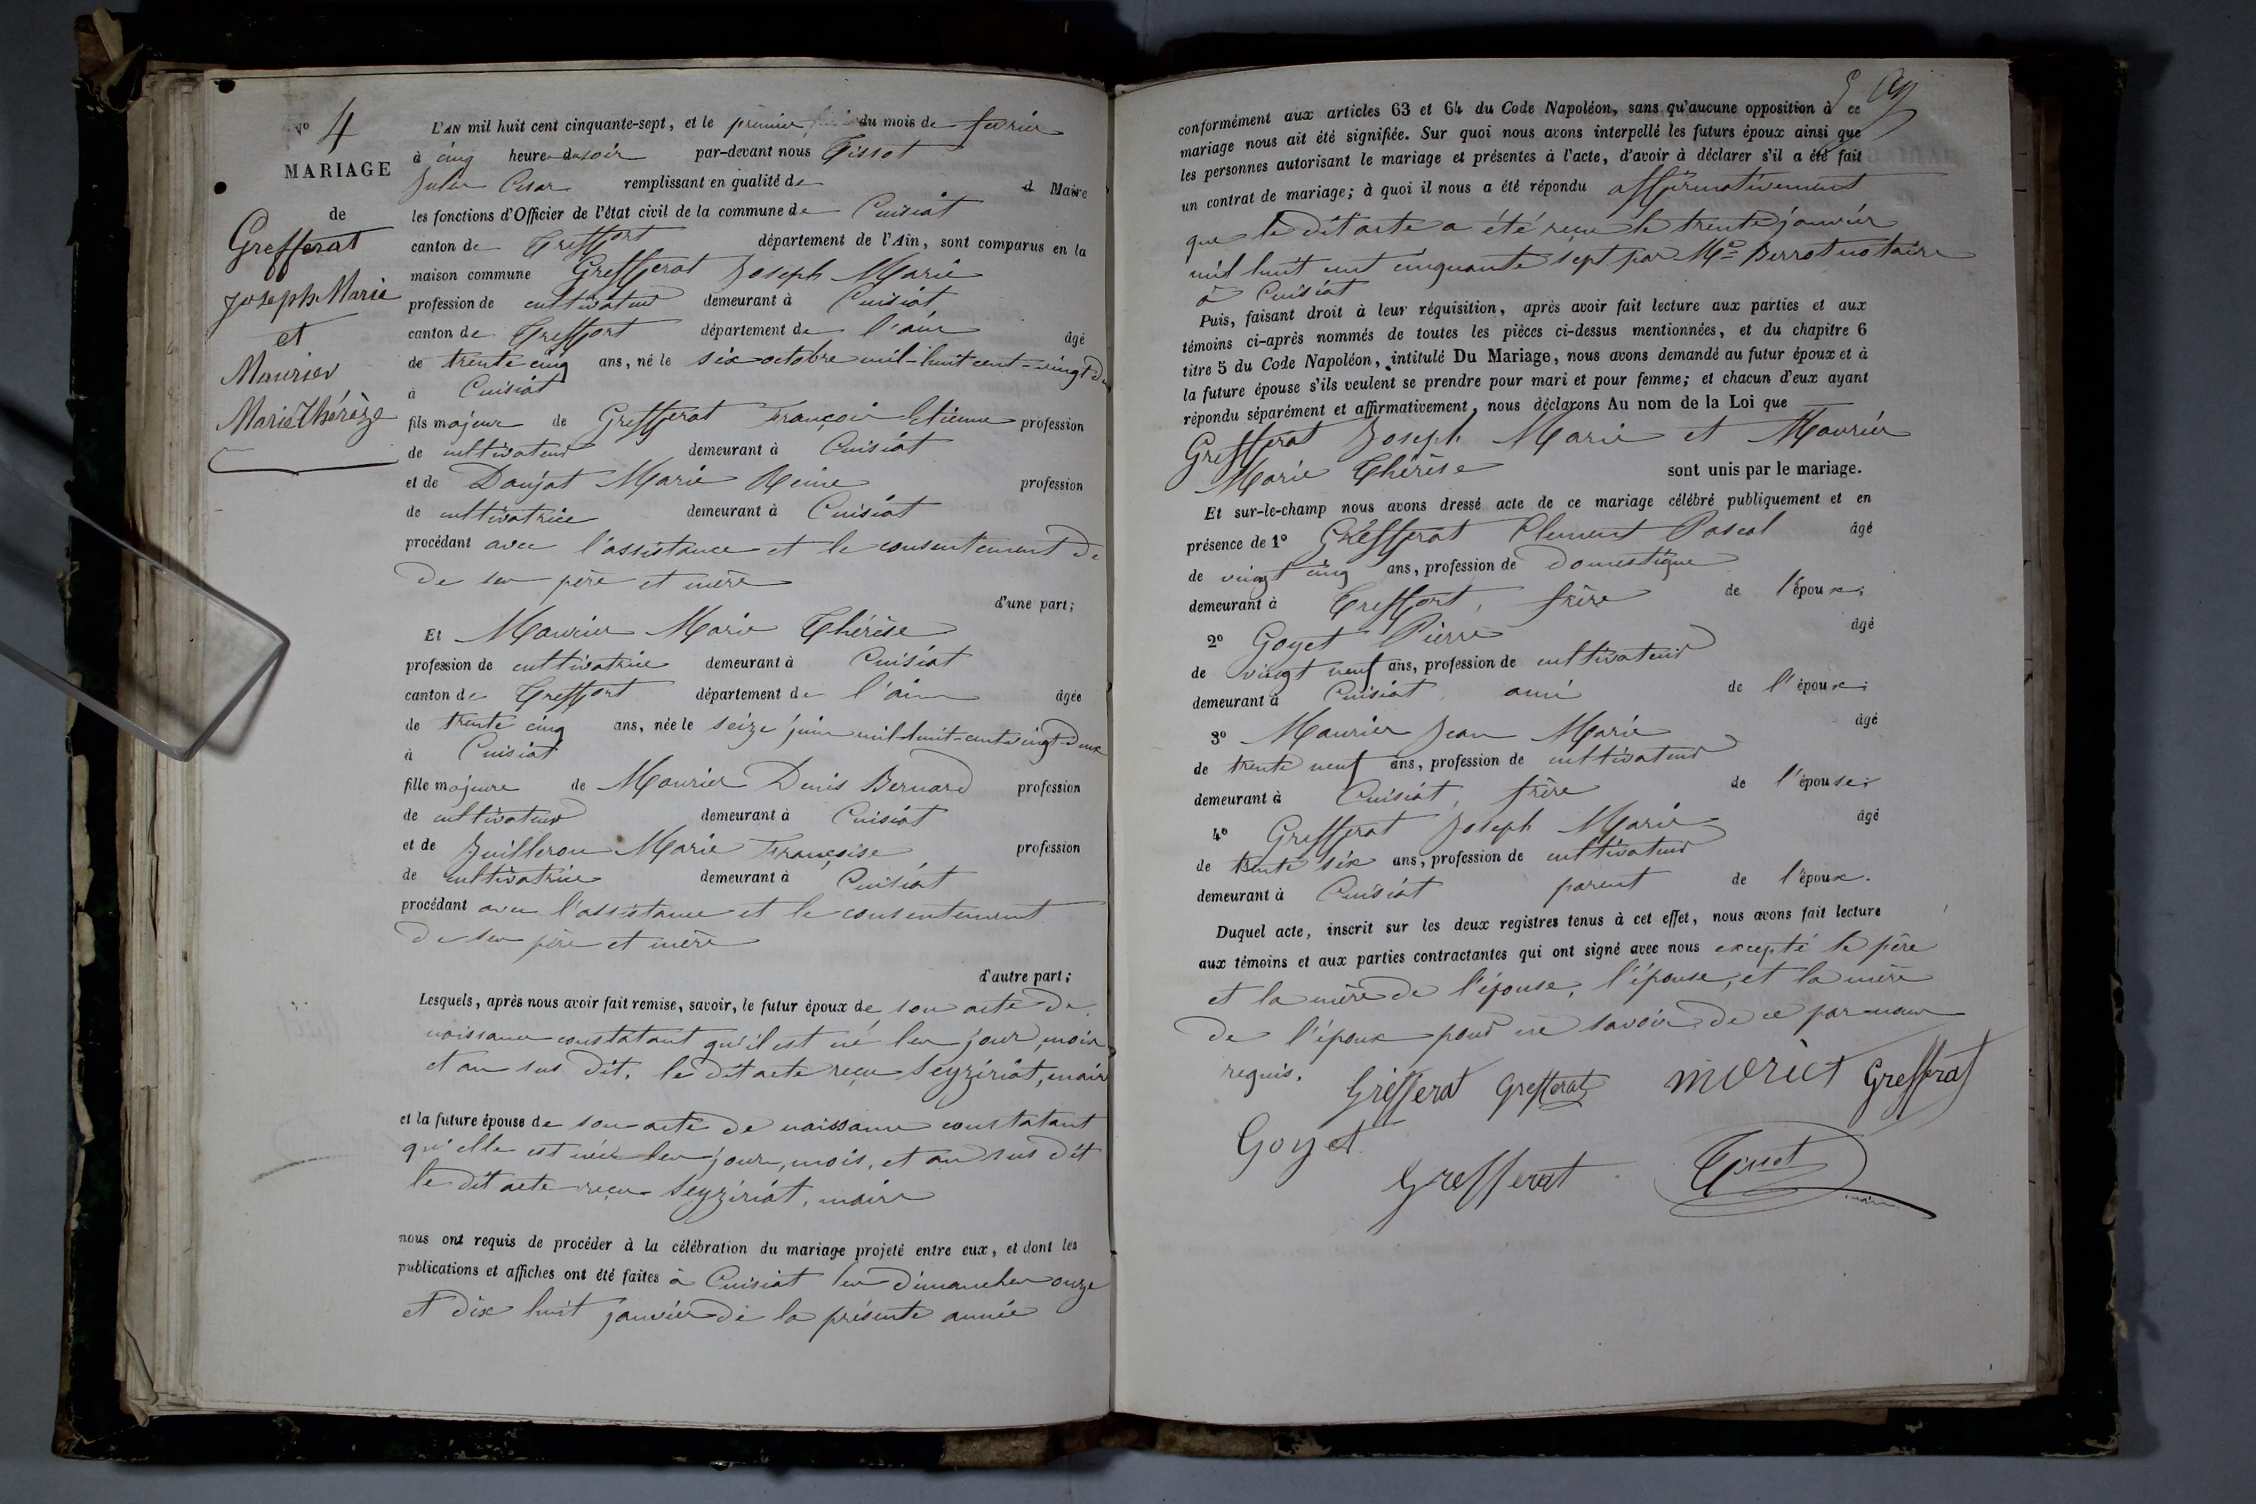 No 4
MARIAGE
de
Grefferat
Joseph Marie
et
Maurier
Marie Thérèze
L'AN mil huit cent cinquante-sept, et le premier du mois de fevrier
à cinq heures du soir par-devant nous Tissot
Jules Cesar remplissant en qualité de d Maire
les fonctions d'Officier de l'état civil de la commune de Cuisiat
canton de Treffort département de l'Ain, sont comparus en la
maison commune Grefferat Joseph Marie
profession de cultivateur demeurant à Cuisiat
canton de Treffort département de l'ain âgé
de trente cinq ans, né le six octobre mil-huit cent-vingt
à Cuisiat
fils majeur de Grefferat François Etienne profession
de cultivateur demeurant à Cuisiat
et de Daujat Marie Reine profession
de cultivatrice demeurant à Cuisiat
procédant avec l'assistance et le consentement de
de ses père et mère
d'une part;
Et Maurier Marie Thérèse
profession de cultivatrice demeurant à Cuisiat
canton de Treffort département de l'ain âgée
de trente cinq ans, née le seize juin mil-huit-cent-vingt-deux
à Cuisiat
fille majeure de Maurier Denis Bernard profession
de cultivateur demeurant à Cuisiat
et de Juilleron Marie Françoise profession
de cultivatrice demeurant à Cuisiat
procédant avec l'assistance et le consentement
de ses père et mère
d'autre part;
Lesquels, après nous avoir fait remise, savoir, le futur époux de son acte de
naissance constatant qu'il est né les jour, mois
et an sus dit. le dit acte reçu Seyziriat, maire
et la future épouse de son acte de naissance constatant
qu'elle est née les jour, mois, et an sus dit
le dit acte reçu Seyziriat, maire
nous ont requis de procéder à la célébration du mariage projeté entre eux, et dont les
publications et affiches ont été faites à Cuisiat les dimanches onze
et dix huit janvier de la présente année
conformément aux articles 63 et 64 du Code Napoléon, sans qu'aucune opposition à ce
mariage nous ait été signifiée. Sur quoi nous avons interpellé les futurs époux ainsi que
les personnes autorisant le mariage et présentes à l'acte, d'avoir à déclarer s'il a été fait
un contrat de mariage; à quoi il nous a été répondu affirmativement
que le dit acte a été reçu le trente janvier
mil huit cent cinquante sept par Me Perrot notaire
à Cuisiat
Puis, faisant droit à leur réquisition, après avoir fait lecture aux parties et aux
témoins ci-après nommés de toutes les pièces ci-dessus mentionnées, et du chapitre 6
titre 5 du Code Napoléon, intitulé Du Mariage, nous avons demandé au futur époux et à
la future épouse s'ils veulent se prendre pour mari et pour femme; et chacun d'eux ayant
répondu séparément et affirmativement, nous déclarons Au nom de la Loi que
Grefferat Joseph Marie et Maurier
Marie Thérèse sont unis par le mariage.
Et sur-le-champ nous avons dressé acte de ce mariage célébré publiquement et en
présence de 1o Grefferat Clement Pascal âgé
de vingt cinq ans, profession de domestique
demeurant à Treffort, frère de l'époux;
2o Goyet Pierre âgé
de vingt neuf ans, profession de cultivateur
demeurant à Cuisiat, ami de l'époux;
3o Maurier Jean Marie âgé
de trente neuf ans, profession de cultivateur
demeurant à Cuisiat, frère de l'épouse;
4o Grefferat Joseph Marie âgé
de trente six ans, profession de cultivateur
demeurant à Cuisiat parent de l'époux.
Duquel acte, inscrit sur les deux registres tenus à cet effet, nous avons fait lecture
aux témoins et aux parties contractantes qui ont signé avec nous excepté le père
et la mère de l'épouse, l'épouse, et la mère
de l'époux pour ne savoir de ce par nous
requis.
Grefferat Grefferat moriet Grefferat
Goyet
Grefferat Tissot
maire